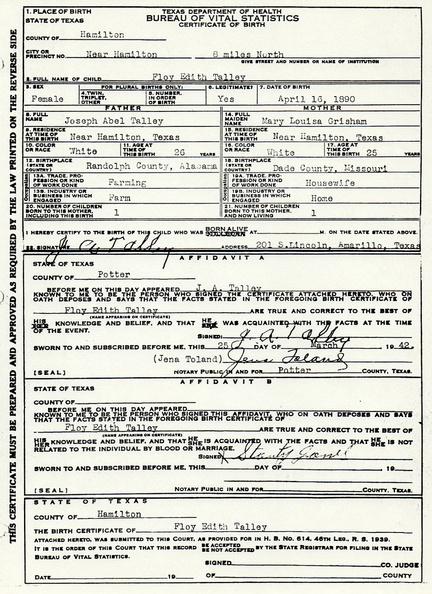 1. PLACE OF BIRTH
STATE OF TEXAS
TEXAS DEPARTMENT OF HEALTH
BUREAU OF VITAL STATISTICS
CERTIFICATE OF BIRTH
COUNTY OF Hamilton
CITY OR PRECINCT NO. Near Hamilton 6 miles North
GIVE STREET AND NUMBER OR NAME OF INSTITUTION
2. FULL NAME OF CHILD Floy Edith Talley
3. SEX Female
FOR PLURAL BIRTHS ONLY:
4. TWIN, TRIPLET, OTHER
5. NUMBER, IN ORDER OF BIRTH
6. LEGITIMATE? Yes
7. DATE OF BIRTH April 16, 1890
FATHER
MOTHER
8. FULL NAME Joseph Abel Talley
14. FULL MAIDEN NAME Mary Louisa Grisham
9. RESIDENCE AT TIME OF THIS BIRTH Near Hamilton, Texas
15. RESIDENCE AT TIME OF THIS BIRTH Near Hamilton, Texas
10. COLOR OR RACE White
11. AGE AT TIME OF THIS BIRTH 26 YEARS
16. COLOR OR RACE White
17. AGE AT TIME OF THIS BIRTH 25 YEARS
12. BIRTHPLACE (STATE OR COUNTRY) Randolph County, Alabama
18. BIRTHPLACE (STATE OR COUNTRY) Dade County, Missouri
13A. TRADE, PROFESSION OR KIND OF WORK DONE Farming
19A. TRADE, PROFESSION OR KIND OF WORK DONE Housewife
13B. INDUSTRY OR BUSINESS IN WHICH ENGAGED Farm
19B. INDUSTRY OR BUSINESS IN WHICH ENGAGED Home
20. NUMBER OF CHILDREN BORN TO THIS MOTHER, INCLUDING THIS BIRTH 1
21. NUMBER OF CHILDREN BORN TO THIS MOTHER, AND NOW LIVING 1
I HEREBY CERTIFY TO THE BIRTH OF THIS CHILD WHO WAS BORN ALIVE AT M. ON THE DATE STATED ABOVE.
22. SIGNATURE J. A. Talley ADDRESS 201 S.Lincoln, Amarillo, Texas
AFFIDAVIT A
STATE OF TEXAS
COUNTY OF Potter
BEFORE ME ON THIS DAY APPEARED J. A. Talley
KNOWN TO ME TO BE THE PERSON WHO SIGNED THE CERTIFICATE ATTACHED HERETO, WHO ON
OATH DEPOSES AND SAYS THAT THE FACTS STATED IN THE FOREGOING BIRTH CERTIFICATE OF
Floy Edith Talley ARE TRUE AND CORRECT TO THE BEST OF
(NAME APPEARING ON CERTIFICATE)
HIS KNOWLEDGE AND BELIEF, AND THAT HE WAS ACQUAINTED WITH THE FACTS AT THE TIME
OF THE EVENT.
SIGNED J. A. Talley
SWORN TO AND SUBSCRIBED BEFORE ME, THIS 25 DAY OF March 1942.
(Jena Toland) Jena Toland
(SEAL) NOTARY PUBLIC IN AND FOR Potter COUNTY, TEXAS.
AFFIDAVIT B
STATE OF TEXAS
COUNTY OF
BEFORE ME ON THIS DAY APPEARED
KNOWN TO ME TO BE THE PERSON WHO SIGNED THIS AFFIDAVIT, WHO ON OATH DEPOSES AND SAYS
THAT THE FACTS STATED IN THE FOREGOING BIRTH CERTIFICATE OF
Floy Edith Talley ARE TRUE AND CORRECT TO THE BEST OF
(NAME APPEARING ON CERTIFICATE)
HIS HER KNOWLEDGE AND BELIEF, AND THAT HE SHE IS ACQUAINTED WITH THE FACTS AND THAT HE SHE IS NOT
RELATED TO THE INDIVIDUAL BY BLOOD OR MARRIAGE.
SIGNED
SWORN TO AND SUBSCRIBED BEFORE ME, THIS DAY OF 19
(SEAL) NOTARY PUBLIC IN AND FOR COUNTY, TEXAS.
STATE OF TEXAS
COUNTY OF Hamilton
THE BIRTH CERTIFICATE OF Floy Edith Talley
ATTACHED HERETO, WAS SUBMITTED TO THIS COURT, AS PROVIDED FOR IN H. B. NO. 614, 46TH LEG., R. S. 1939.
IT IS THE ORDER OF THIS COURT THAT THIS RECORD BE ACCEPTED BE NOT ACCEPTED BY THE STATE REGISTRAR FOR FILING IN THE STATE
BUREAU OF VITAL STATISTICS.
SIGNED CO. JUDGE
DATE 19 OF COUNTY
THIS CERTIFICATE MUST BE PREPARED AND APPROVED AS REQUIRED BY THE LAW PRINTED ON THE REVERSE SIDE